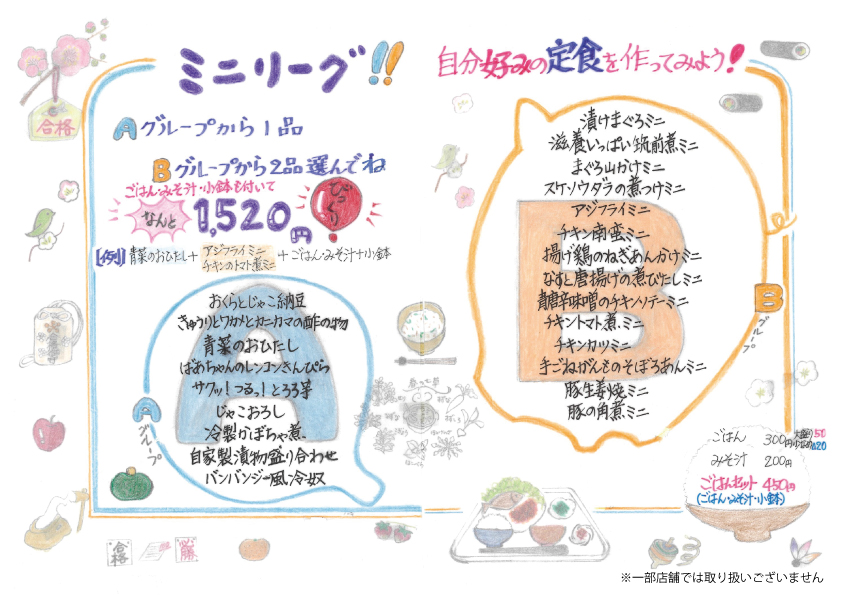 ミニリーグ!!
Aグループから1品
Bグループから2品選んでね
ごはん・みそ汁・小鉢も付いて
なんと
1,520円
びっくり
【例】青菜のおひたし+アジフライミニ
チキンのトマト煮ミニ
+ごはん・みそ汁+小鉢
おくらとじゃこ納豆
きゅうりとワカメとカニカマの酢の物
青菜のおひたし
ばあちゃんのレンコンきんぴら
サクッ!つるっ!とろろ芋
じゃこおろし
冷製かぼちゃ煮
自家製漬物盛り合わせ
バンバンジー風冷奴
Aグループ
合格
合格
必勝
自分好みの定食を作ってみよう!
漬けまぐろミニ
滋養いっぱい筑前煮ミニ
まぐろ山かけミニ
スケソウダラの煮つけミニ
アジフライミニ
チキン南蛮ミニ
揚げ鶏のねぎあんかけミニ
なすと唐揚げの煮びたしミニ
青唐辛味噌のチキンソテーミニ
チキントマト煮ミニ
チキンカツミニ
手ごねがんものそぼろあんミニ
豚生姜焼ミニ
豚の角煮ミニ
Bグループ
ごはん 300円 大盛り50
みそ汁 200円
ごはんセット 450円
(ごはん・みそ汁・小鉢)
※一部店舗では取り扱いございません